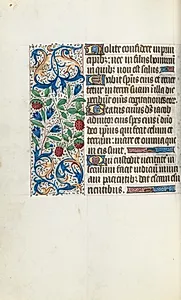 Nolite confidere in prin
cipib; nec in filiis hominum
in quib; non est salus
Exibit spūs eius et reuer
tetur in terrā suam in illa die
peribunt oīns cogitationes eorū
Beatus cuius dus iacob
adiutor eius spes eius in dno
deo ipsius qui fecit celum et
terram mare et omnia que
in eis sunt
Qui custodit ueritatē in
seculum facit iudicium iniuri
am patientib; dat escam esu
rientibus